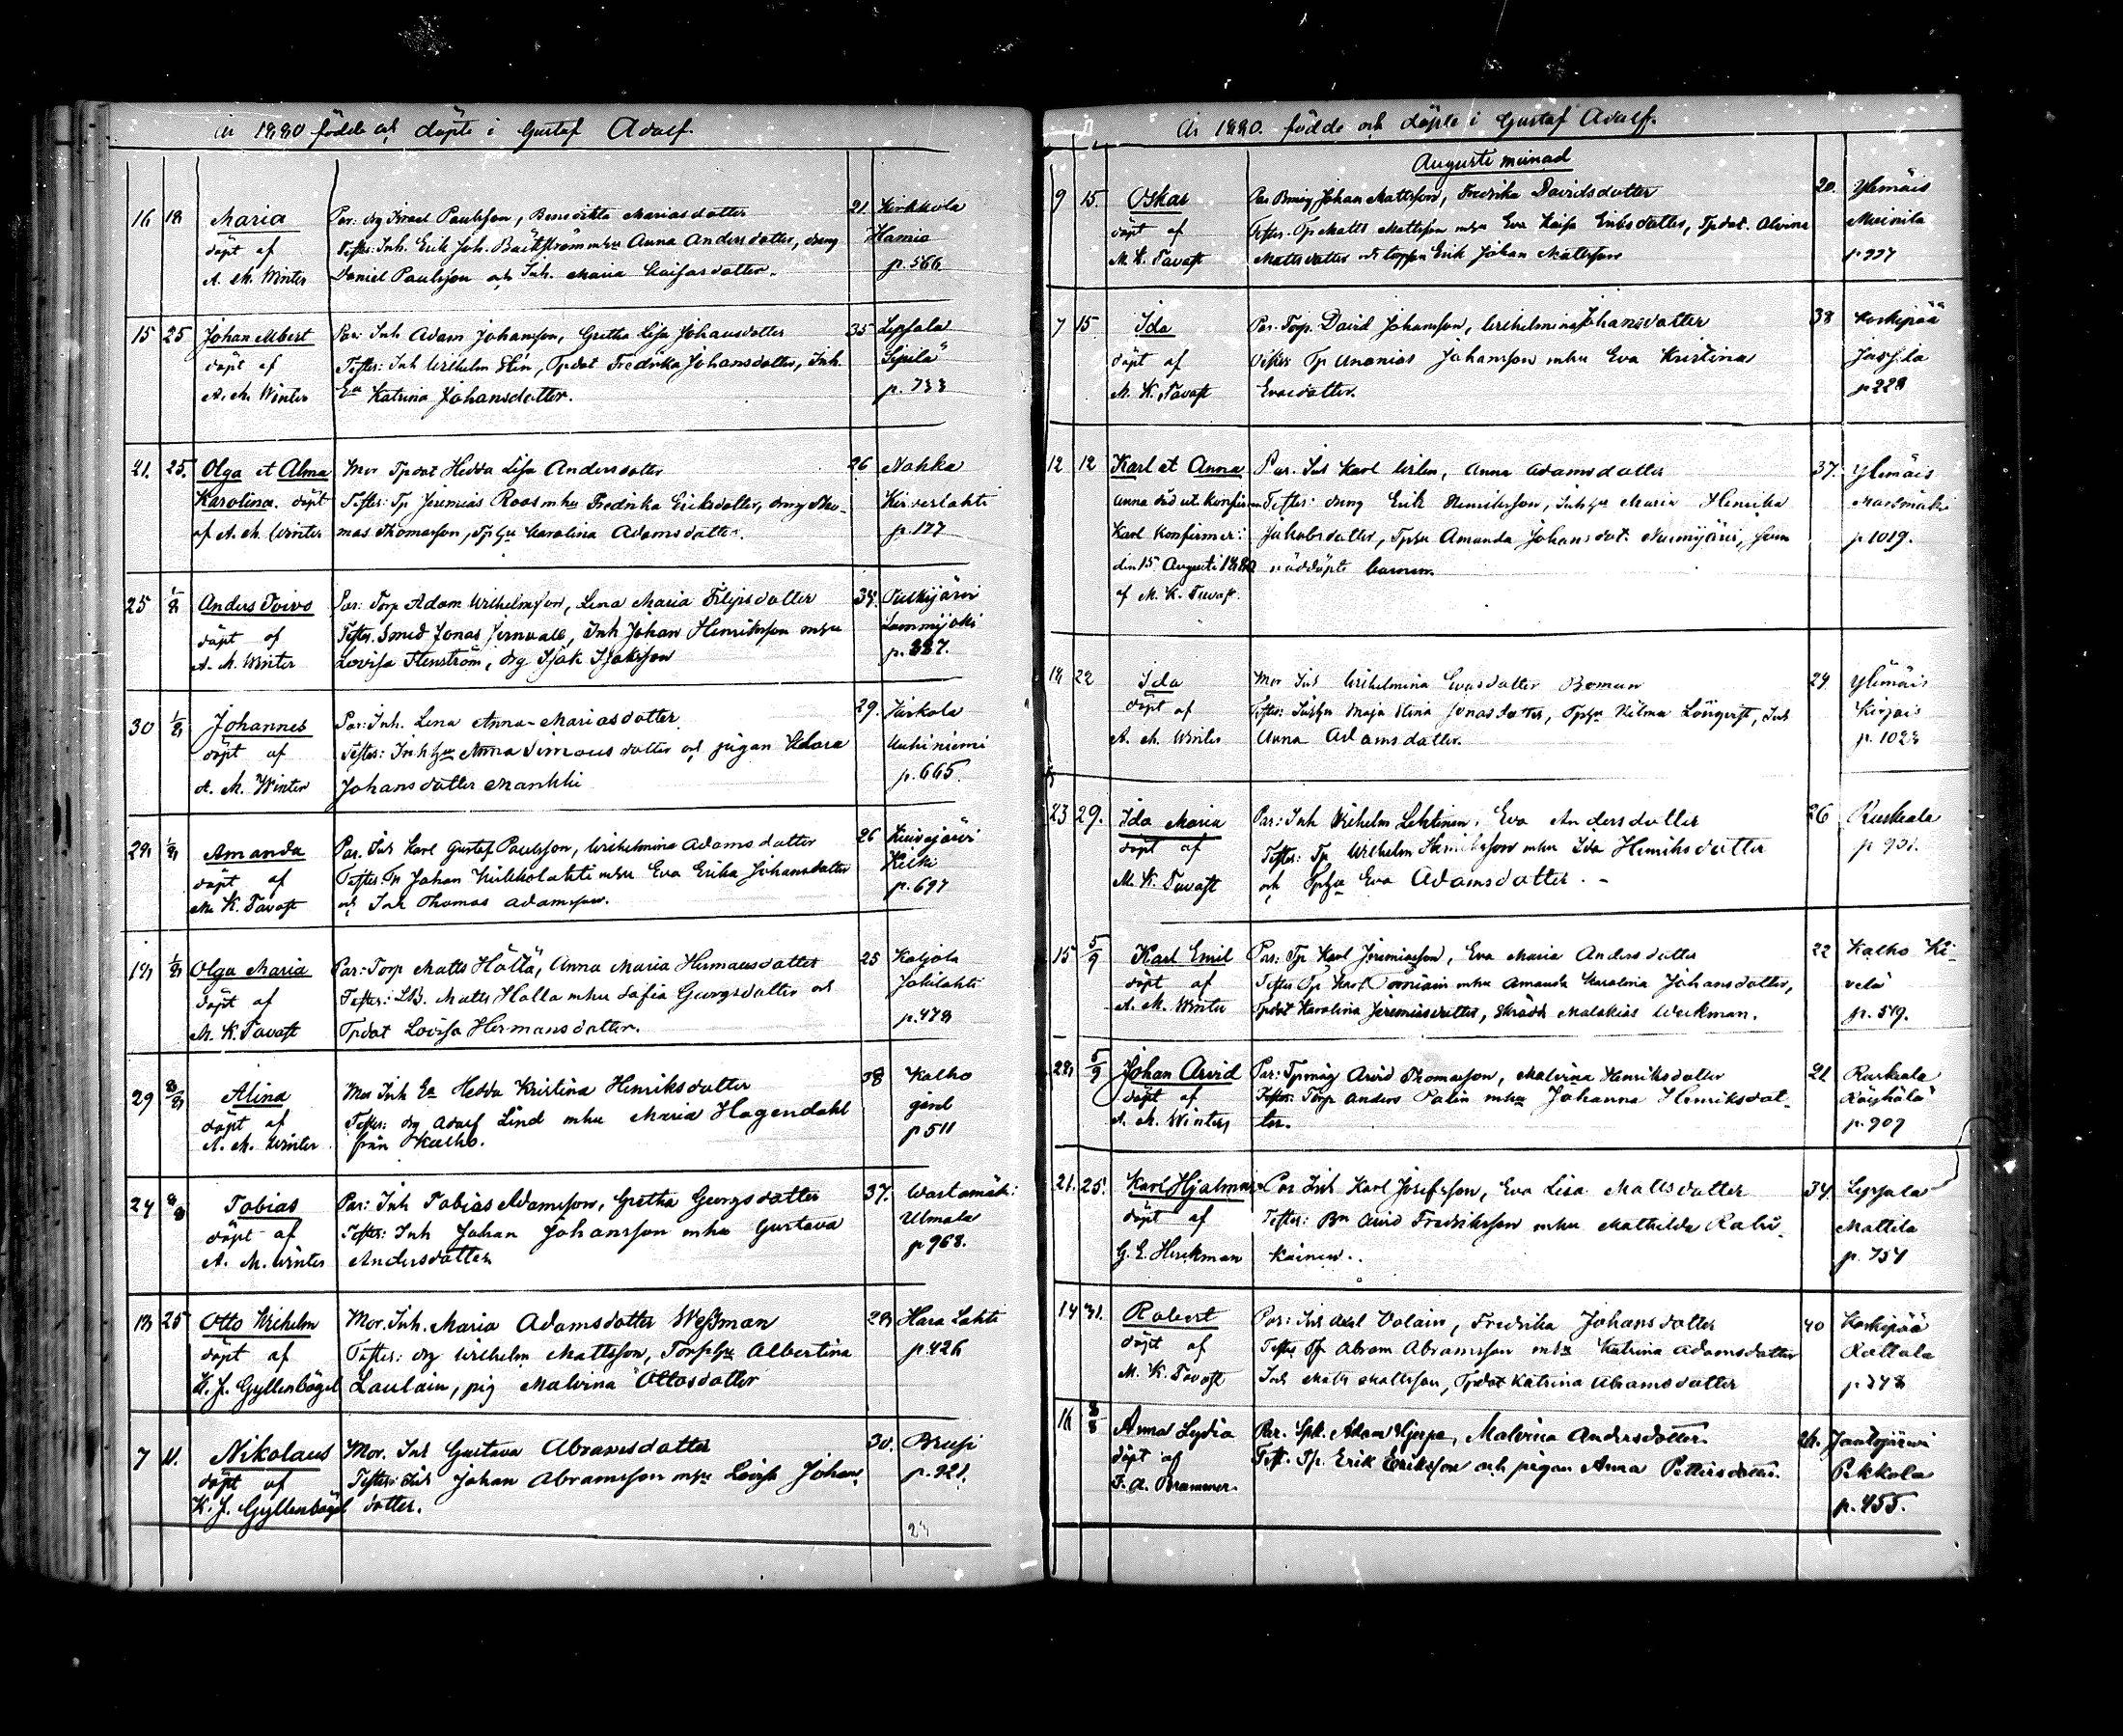 År 1880 födde och döpte i Gustaf Adolf.
16 18 Maria Par: drg Israel Paulsson, Benedikta Mariasdotter 21 Kirkkola
döpt af Testes: Inh. Erik Joh. Bäckström mhu Anna Andersdotter, dräng Hamia
A. M. Winter Daniel Paulsson och Inh. Maria Kaisasdotter. p. 566
15 25 Johan Albert Par: Inh Adam Johansson, Gretha Lisa Johansdotter 35 Lepsala
döpt af Testes: Inh Wilhelm Elin, Tpdot Fredrika Johansdotter, Inh. Seppilä
A. M. Winter Ea Katrina Johansdotter. p. 733
21. 25. Olga et Alma Mor Tpdot Hedda Lisa Andersdotter 26 Nokka
Karolina. döpt Testes: Tp Jeremias Roos mhu Fredrika Eriksdotter, dräng Tho-
af A. M. Winter mas Thomasson, Tphu Karolina Adamsdotter. p. 177
25 1/8 Anders Toivo Par: Torp Adam Wilhelmsson, Lena Maria Filipsdotter 34. Pulkijärvi
döpt af Testes. Smed Jonas Jernvall, Inh Johan Henriksson mhu Lammijoki
A. M. Winter Lovisa Stenström, drg Isak Isaksson p. 337.
30 1/8 Johannes Par: Inh. Lena Anna-Mariasdotter 29. Kirkola
döpt af Testes: Inhhu Anna Simonsdotter och pigan Klara Uuhiniemi
A. M. Winter Johansdotter Mankki p. 665.
28 1/8 Amanda Par. Inh Karl Gustaf Paulsson, Wilhelmina Adamsdotter 26 Kuivajärvi
döpt af Testes. Tp Johan Kirkkolahti mhu Eva Erika Johansdotter Kelki
M. K. Tavast och Inh Thomas Adamsson. p. 697
18 1/8 Olga Maria Par: Torp Matts Hällä, Anna Maria Hermansdotter 25 Kaljola
döpt af Testes: Matts Halla mhu Sofia Georgsdotter och Jokilahti
M. K. Tavast Tpdot Lovisa Hermansdotter. p. 478
29 8/8 Alina Mor Inh Ea Hedda Kristina Henriksdotter 38 Kalho
döpt af Testes: drg Adolf Lind mhu Maria Hagendahl gård
A. M. Winter från Kalho. p 511
24 8/8 Tobias Par: Inh Tobias Adamsson, Gretha Georgsdotter 37. Wartamäki
döpt af Testes: Inh Johan Johansson mhu Gustava Ulmala
A. M. Winter Andersdotter p 968.
18 25 Otto Wilhelm Mor. Inh. Maria Adamsdotter Wessman 28 Hara Lahti
döpt af Testes: drg Wilhelm Mattsson, Torphu Albertina p. 426
K. J. Gyllenbögel Laulain, pig Malvina Ottosdotter
7 11. Nikolaus Mor. Inh Gustava Abramsdotter 30. Brusi
döpt af Testes: Inh Johan Abramsson mhu Lovisa Johans p. 921.
K. J. Gyllenbögel dotter.
År 1880. födde och döpte i Gustaf Adolf.
Augusti månad
9 15. Oskar Par Johan Mattsson, Fredrika Davidsdotter 20. Ylimäis
döpt af Testes. Tp Matts Mattsson mhu Eva Kaisa Eriksdotter, Tpdot. Alvina Meinila
M. K. Tavast Mattsdotter och Erik Johan Mattsson p 997
7 15 Ida Par: Torp. David Johansson, Wilhelmina Johansdotter 38 Koskipää
döpt af Testes Tp Ananias Johansson mhu Eva Kristina Jussila
M. K. Tavast Evasdotter. p 228
12 12 Karl et Anna Par. Inh Karl Wilen, Anna Adamsdotter 37. Ylimäis
Testes: dräng Erik Henriksson, Inhhu Maria Henrika
Karl konfirmer: Jakobsdotter, Tphu Amanda Johansdot. p 1019.
din 15 Augusti 1880 nöddöpte barnen.
af M. K. Tavast.
18 22 Ida Mor Inh Wilhelmina Evasdotter Boman 29 Ylimäis
döpt af Testes: Inhhu Maja Stina Jonasdotter, Tphu Hilma Löngqvist, Inh Kirjais
A. M. Winter Anna Adamsdotter. p. 1023
23 29. Ida Maria Par: Inh Wilhelm Lehtinen, Eva Andersdotter 26 Ruskeala
döpt af Testes: Tp Wilhelm Henriksson mhu Ida Henriksdotter p 901.
M. K. Tavast och Tphu Eva Adamsdotter.
15 5/9 Karl Emil Par: Tp Karl Jeremiasson, Eva Maria Andersdotter 22 Kalho Ki-
döpt af Testes Tp Karl Torniain mhu Amanda Karolina Johansdotter, velä
A. M. Winter Tpdot Karolina Jeremiasdotter, Skrädd Malakias Weckman. p. 519.
28 5/9 Johan Arvid Par: Tpmåg Arvid Thomasson, Malvina Henriksdotter 21 Ruskeala
döpt af Testes: Torp Anders Palin mhu Johanna Henriksdot- Röyhälä
A. M. Winter ter. p. 909
21. 25. Karl Hjalmar Par Inh Karl Josefsson, Eva Lisa Mattsdotter 34. Lepsala
döpt af Testes: Bn Arvid Fredriksson mhu Mathilda Rati- Mattila
G. E. Heickman kainen. p. 754
14 31. Robert Par: Inh Axel Volain, Fredrika Johansdotter 40 Koskipää
döpt af Testes Tp Abram Abramsson mhu Katrina Adamsdotter Rallala
M. K. Tavast Inh Matts Mattsson, Tpdot Katrina Abramsdotter p 348
16 8/8 Anna Lydia Par. Spl. Adam Hjerpe, Malvina Andersdotter. 26. Jaalajärvi
döpt af Test. Tp. Erik Eriksson och pigan Anna Pettersdotter. Pekkola
F. A. Brummer. p. 455.